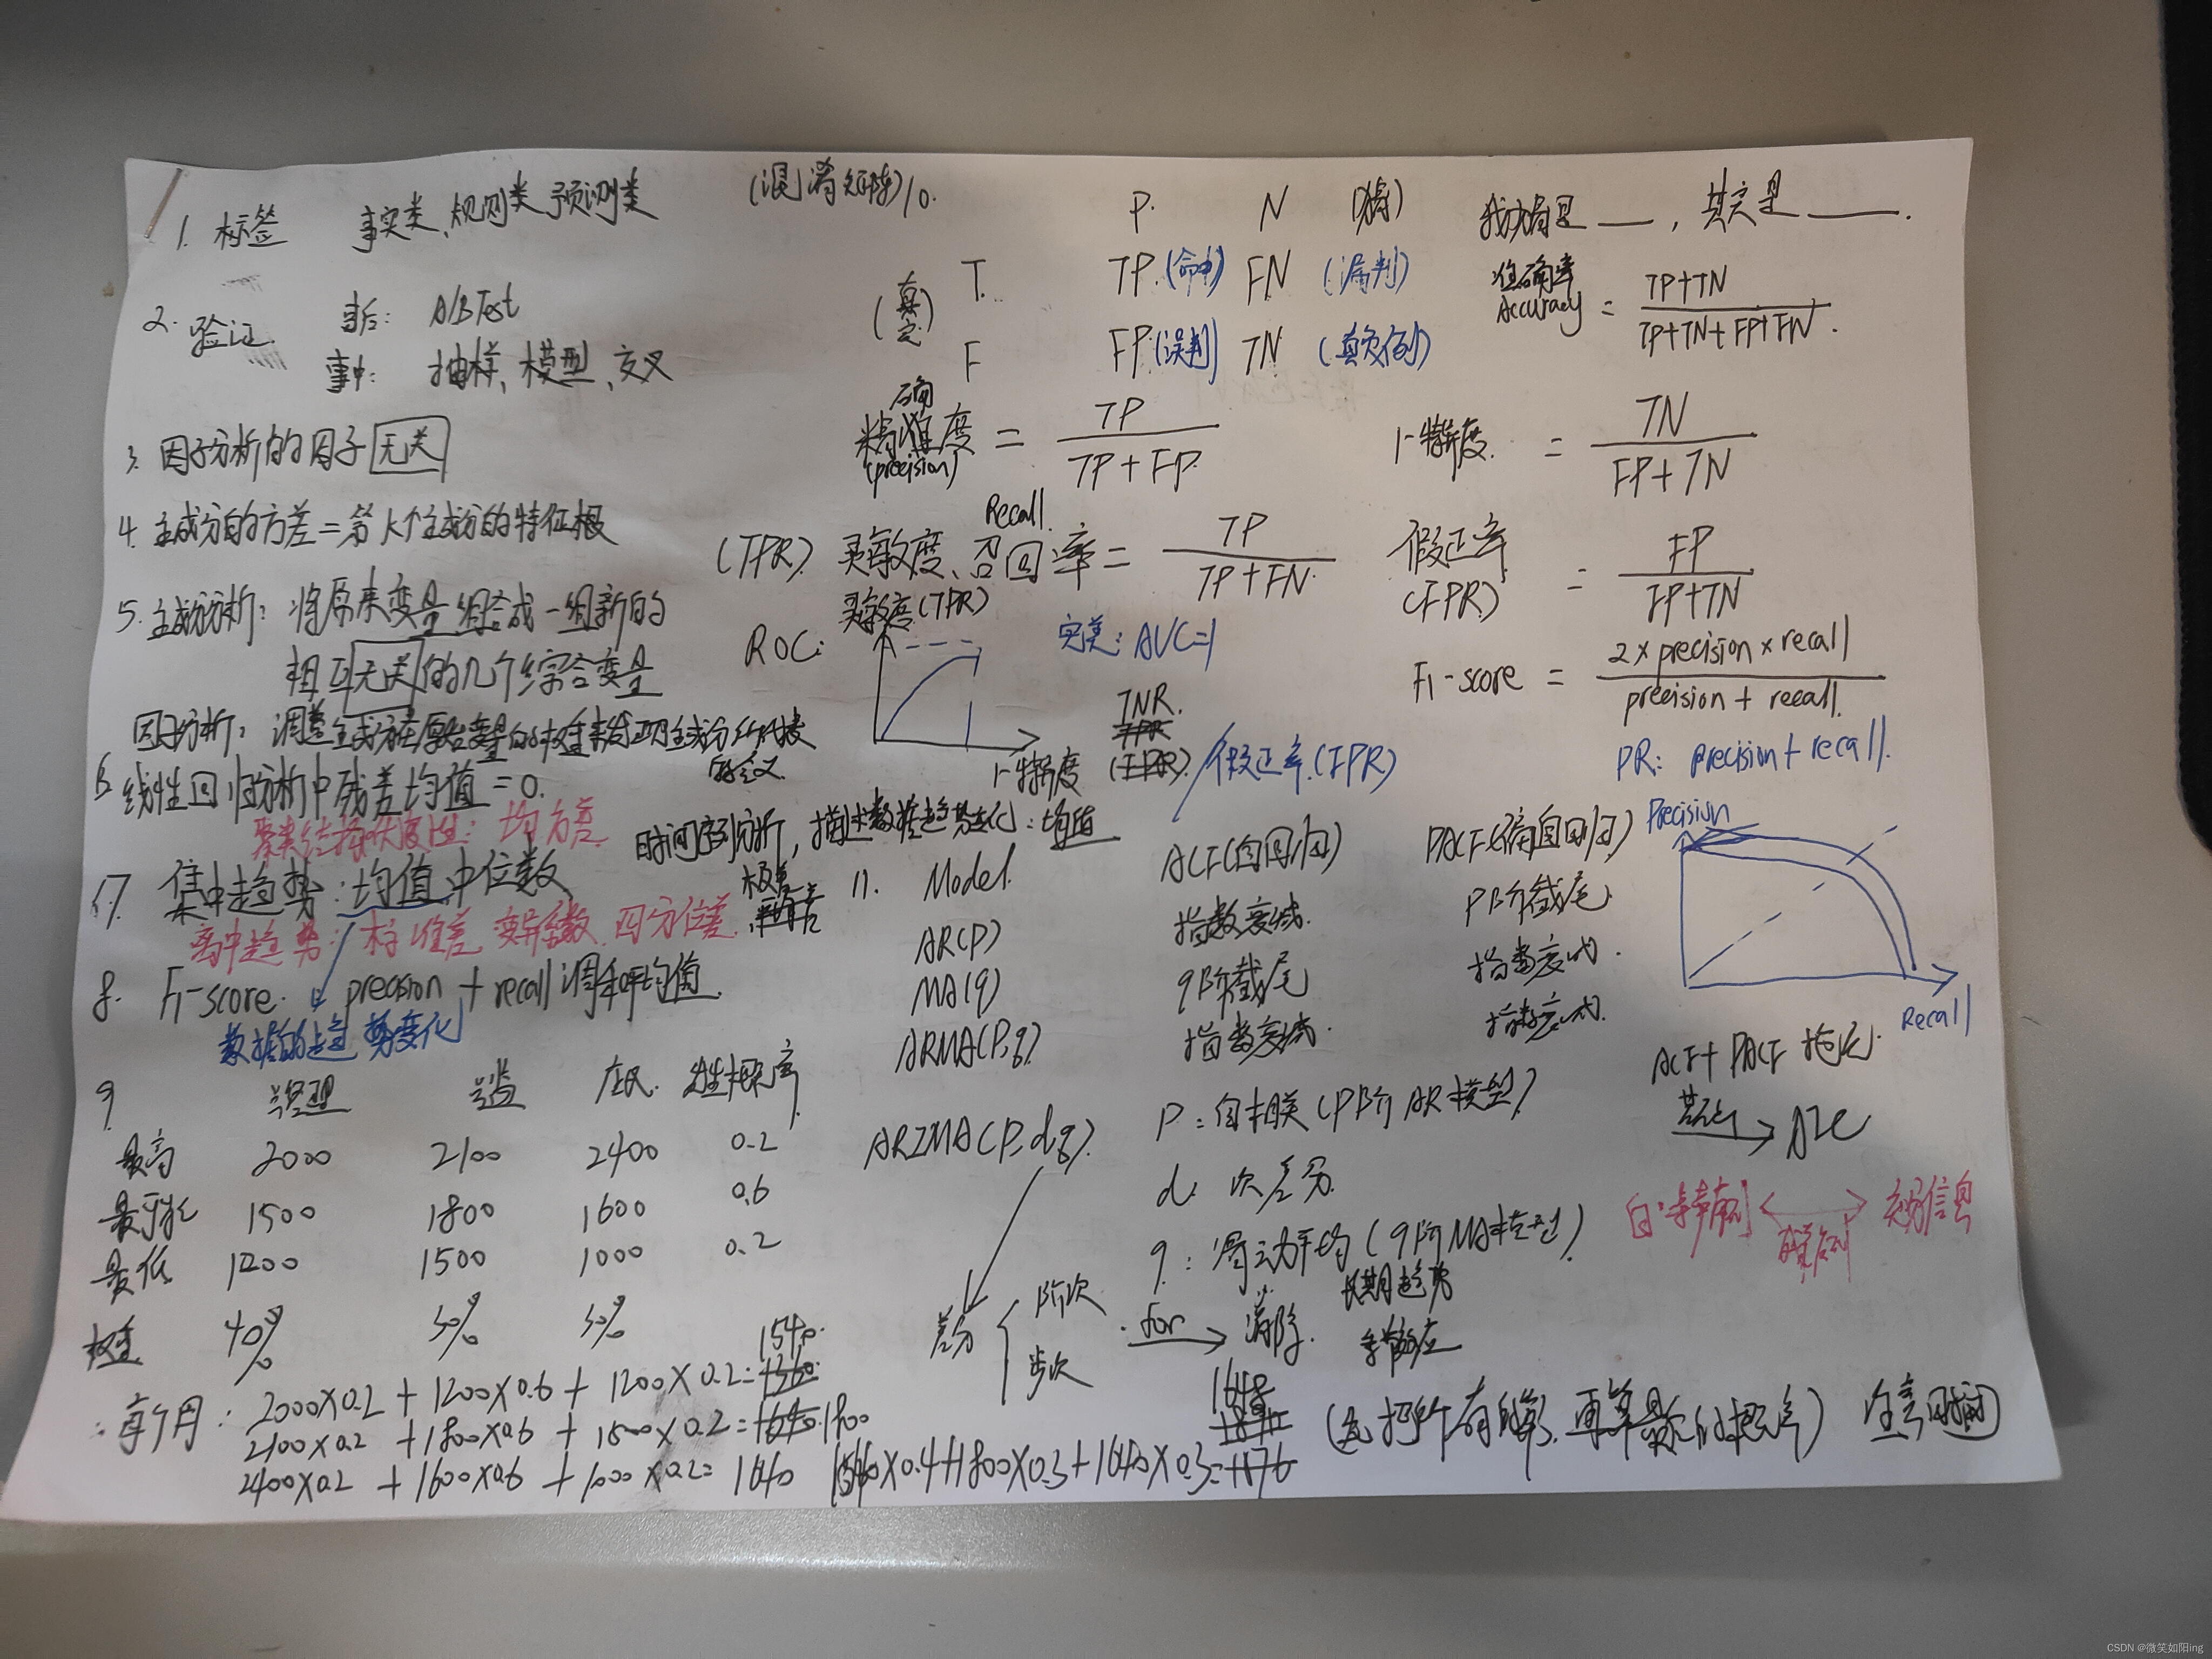 1. 标签 事实类、规则类 预测类
2. 验证 事后: A/B Test
事中: 抽样、模型、交叉
3. 因子分析的因子 无关
4. 主成分的方差=第K个主成分的特征根
5. 主成分分析: 将原来变量组合成一组新的
相互无关的几个综合变量
因子分析: 调整主成分在原始变量的权重来
6. 线性回归分析中残差均值=0.
均方差
7 集中趋势: 均值 中位数
离中趋势: 标准差 变异系数 四分位差 极差
8. F1-score. precision + recall 调和平均值
数据的趋势变化
9
2000 2100 2400 0.2
最高
最可能 1500 1800 1600 0.6
最低 1200 1500 1000 0.2
权重 40% 30% 30%
每个月: 2000×0.2 + 1200×0.6 + 1200×0.2= 1540
2100×0.2 + 1800×0.6 + 1500×0.2= 1800
2400×0.2 + 1600×0.6 + 1000×0.2= 1640
1540×0.4+1800×0.3+1640×0.3= 1648
(混淆矩阵)10.
P. N (猜)
(真实) T. TP.(命中) FN (漏判)
F FP(误判) TN (真负例)
我猜是 , 其实是 .
准确率
Accuracy = TP+TN
TP+TN+FP+FN.
精准度 = TP
确
(precision) TP+FP.
1-特异度. = TN
FP+TN
Recall.
(TPR) 灵敏度、召回率= TP
TP+FN.
假正率
(FPR) = FP
FP+TN
灵敏度(TPR)
ROC:
完美: AUC=1
TNR.
1-特异度 (FPR) 假正率.(FPR)
F1-score = 2×precision×recall
precision + recall.
PR: precision + recall.
Precision
Recall
时间序列分析, 描述数据趋势变化: 均值
11. Model. ACF(自回归) PACF(偏自回归)
AR(P) 指数衰减. P阶截尾.
MA(q) q阶截尾 指数衰减.
ARMA(P,q) 指数衰减. 指数衰减.
ARIMA(P,d,q). P: 自相关(P阶AR模型)
d: 次差分.
q: 滑动平均(q阶MA模型)
差分 阶次 for 消除. 长期趋势
步次 季节效应
ACF+PACF 拖尾.
白噪声
CSDN @微笑如阳ing